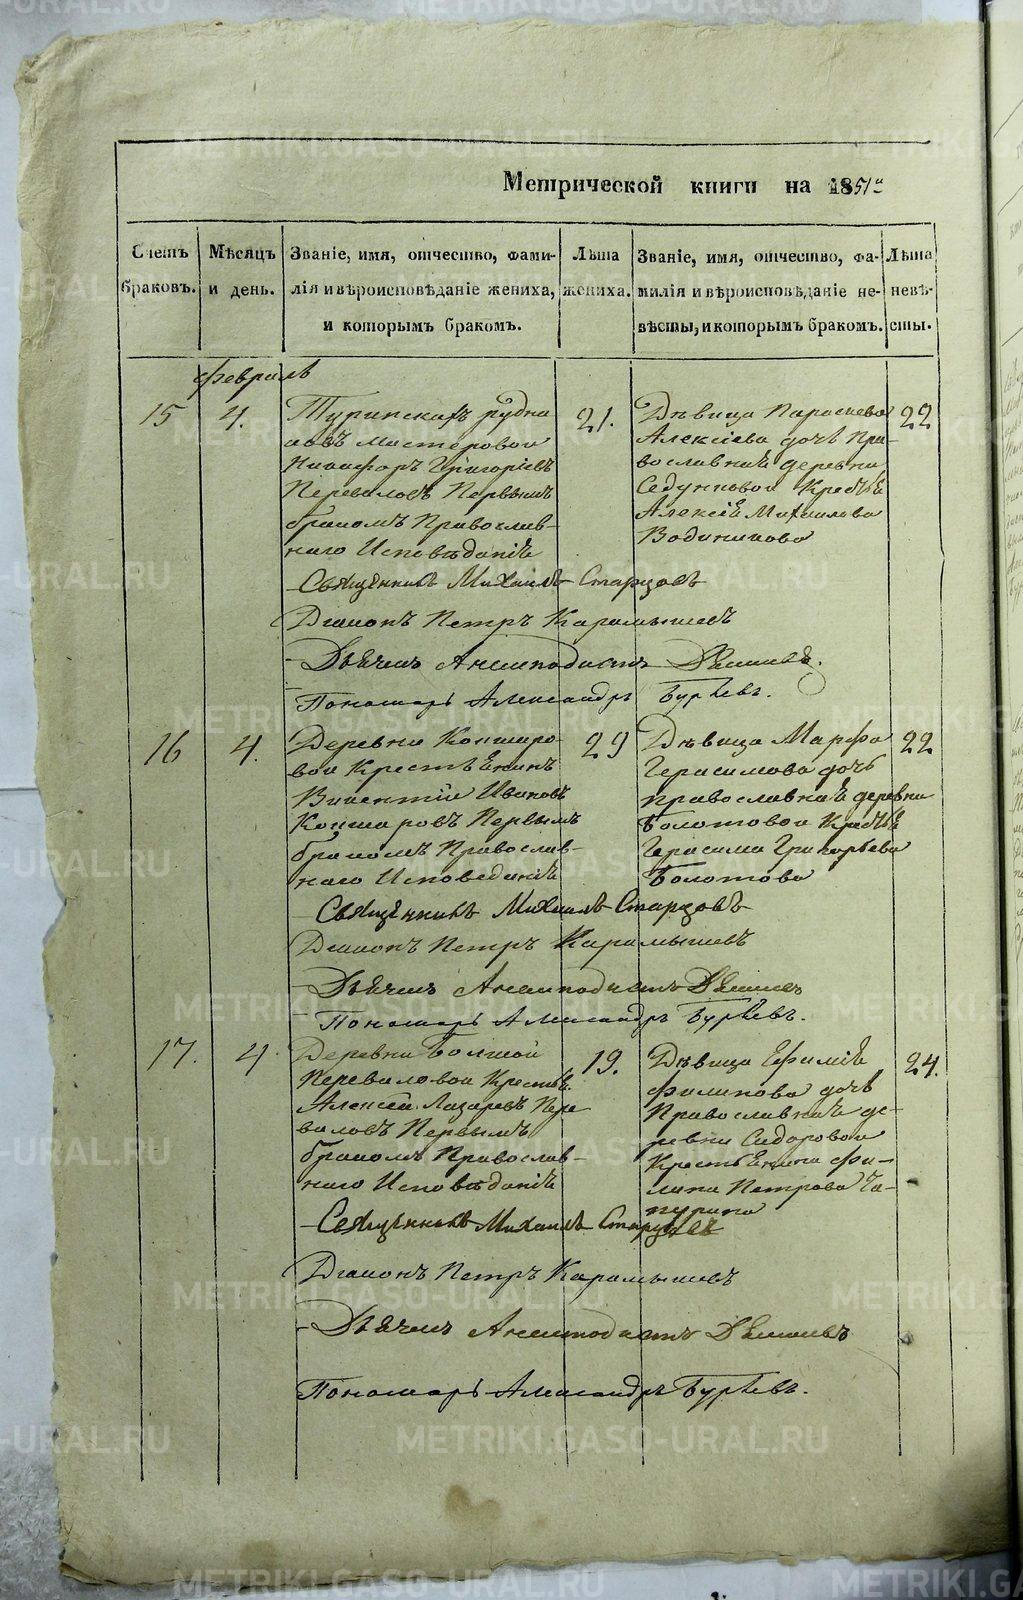 Метрической книги на 1851й
Счетъ браковъ.
Мѣсяцъ и день.
Званіе, имя, отчество, фами-
лія и вѣроисповѣданіе жениха,
и которымъ бракомъ.
Лѣта жениха.
Званіе, имя, отчество, фа-
милія и вѣроисповѣданіе не-
вѣсты, и которымъ бракомъ.
Лѣта невѣ-
сты.
Февраль
15
4.
Туринскахъ рудни
ковъ мастеровои
Никифоръ Григоріевъ
Переваловъ Первымъ
бракомъ Православ-
наго Исповѣданія
21.
Дѣвица Парасковья
Алексіева дочь пра-
вославная деревни
Седунковои Крестья
Алексія Михаилова
Водиникова
22
Священникъ Михаилъ Старцовъ
Діаконъ Петръ Карамышевъ
Дьячекъ Анемподистъ
Пономарь Александръ Бурьевъ.
16
4.
Деревни Кокшаро-
вои Крестьенинъ
Викентіи Ивановъ
Кокшаровъ Первымъ
бракомъ Православ-
наго Исповеданія
29
Дѣвица Марфа
Герасимова дочь
православная деревни
Болотовои Крестья
Герасима Григорьева
Болотова
22
Священникъ Михаилъ Старцовъ
Діаконъ Петръ Карамышевъ
Дьячекъ Анемподистъ
Пономарь Александръ Бурьевъ.
17.
4
Деревни Болшои
Переваловои Крестья
Алексеи Лазаревъ Пере
валовъ Первымъ
бракомъ Православ-
наго Исповѣданія
19.
Дѣвица Ефимія
Филипова дочь
Православная де-
ревни Сидоровои
Крестьенина Фи-
липа Петрова Ча-
пурина
24.
Священникъ Михаилъ Старцовъ
Діаконъ Петръ Карамышевъ
Дьячекъ Анемподистъ
Пономарь Александръ Бурьевъ.
METRIKI.GASO-URAL.RU